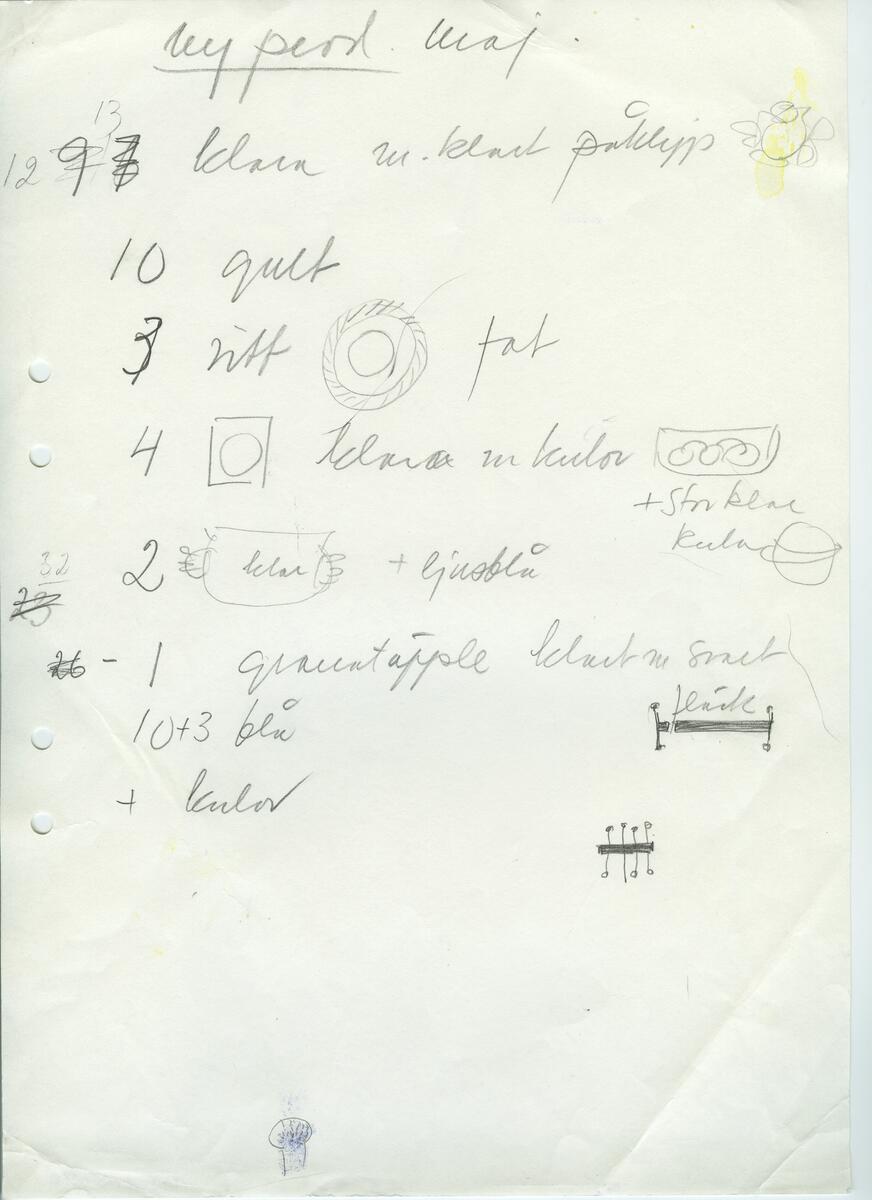 ny prod. maj.
13
12 klara m. klart påklipp
10 gult
3 vitt fat
4 klara m kulor
+ stor klar
kula
2 klar + ljusblå
32
23
26 - 1 granatäpple klart m svart
fläck
10+3 blå
+ kulor